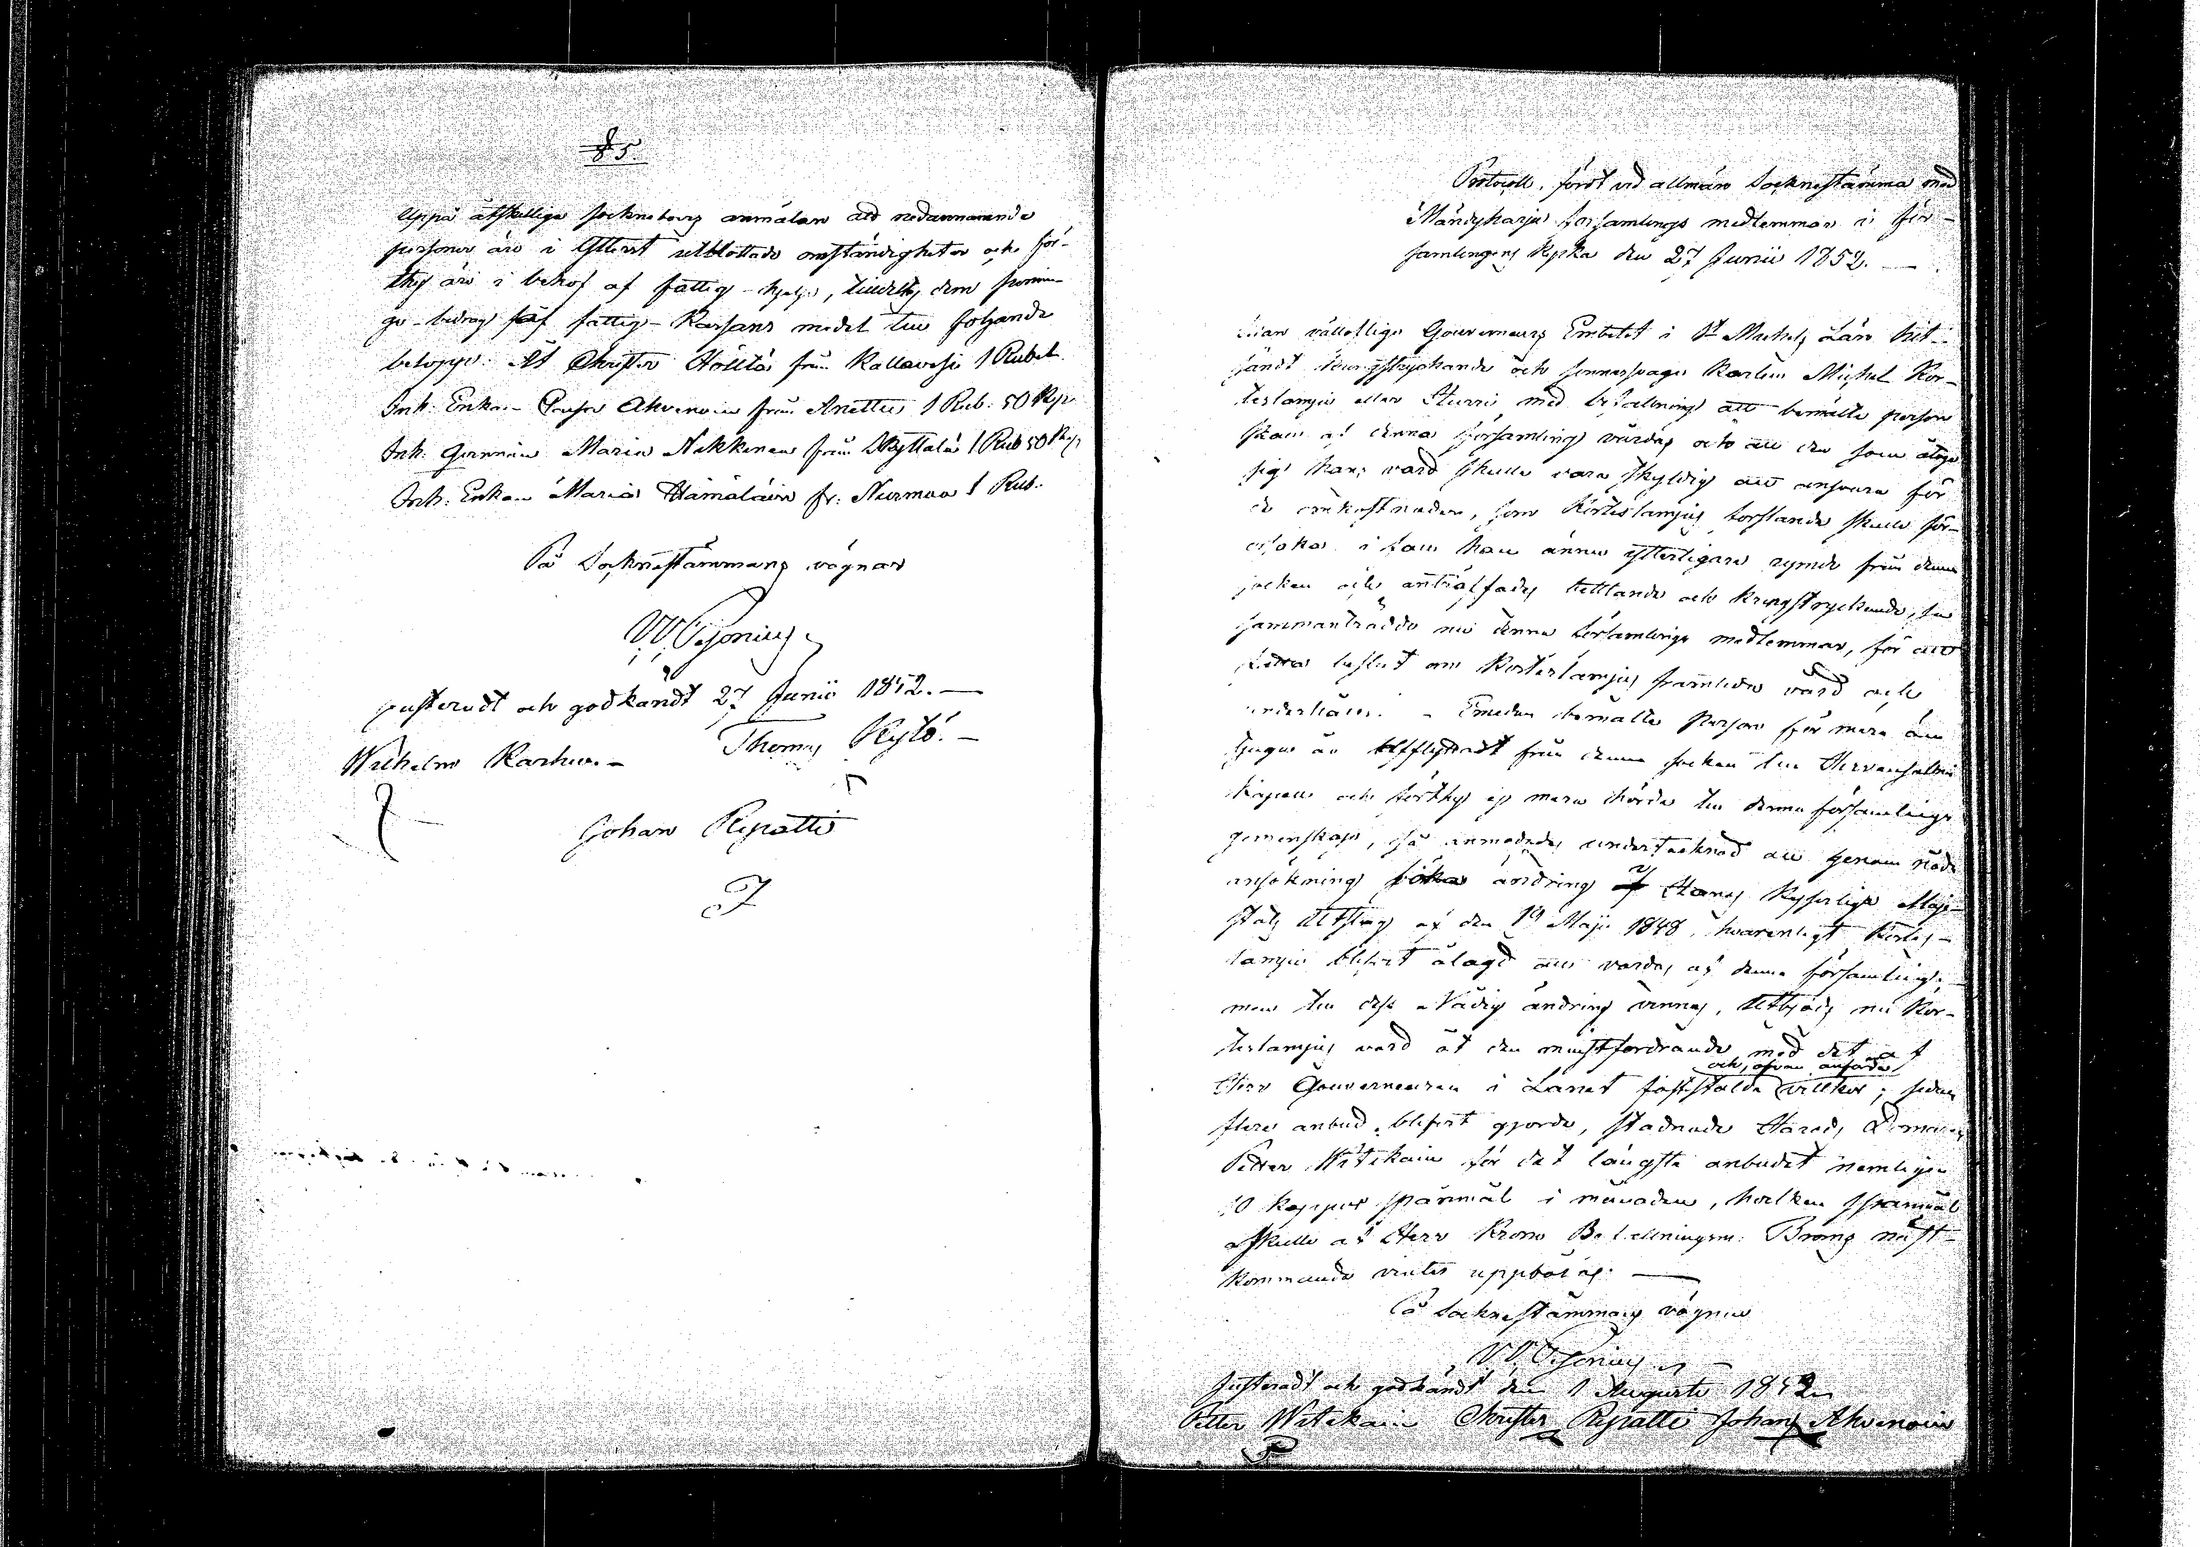 § 5.
Uppå åtskillige Sockneboers anmälan att nedannämnde
personer äro i ytterst utblottade omständigheter och för-
thy äro i behof af fattig-hjelp, tilldeltes dem penni-
ge-bidrag af fattig-Kassans medel till följande
belopp: Åt Christer Hölttä från Kallavesi 1 Rubel
Inh. Enkan Ahvenain från Anettu 1 Rub. 50 Kop.
Inh. Maria Nikkanen från Kyttälä 1 Rub 50 Kop
Inh. Enkan Maria Hämäläin fr. Nurmaa 1 Rub.
På Sockenstämmans vägnar
W. Pesonius
justeradt och godkändt 27 Junii 1852. —
Wilhelm Karhu. — Thomas Kylö. —
Johan Repatti
Protocoll, fördt vid allmän Sockenstämma med
Mändyharju församlings medlemmar i för-
samlingens Kyrka den 27 Junii 1852. —
vällofliga Gouverneurs Embetet i St Michels Län hit-
sändt kringstrykande och Karlen Michel Kor-
teslamjin eller Hurri med befallning att bemälte person
skall af denna församling vårdas och att den som åtoge
sig hans vård skulle vara skyldig att ansvara för
de omkostnader, som Korteslamjins torde för-
orsaka i fall han ännu ytterligare rymde från denna
socken och anträffades kringstrykande, så
sammanträdde nu denna församlings medlemmar, för att
beslut om Korteslamjins framtida vård och
underhåll. – Emedan bemälte Person för mera än
tjugu år afflyttadt från denna socken till Hirvensalmi
Kapell och förthy ej mera hörde till denna församlings
gemenskap, så anmodades undertecknad att genom nåd.
ansökning söka ändring af Hans Kejserliga Maje-
stäts Utslag af den 19 Maji 1848, hvarenligt Kortes-
lamjin blifvit ålagd att vårdas af denna församling;
men till dess Nådig ändring vinnes, utbjöds nu Kor-
teslamjins vård åt den minstfordrande med det af
Herr Gouverneuren i Länet fastställda och, ofvan anförda villkor; sedan
flere anbud blifvit gjorde, stadnade Härads Domaren
Petter Witikain för det lägsta anbudet nemligen
10 kappar spanmål i månaden, hvilken spanmål
skulle af Herr Krono Befallningsm. Brang näst-
kommande vinter uppbäras. —
På Sockenstämmans vägnar
W. Pesonius
Justeradt och godkändt den 1 Augusti 1852
Petter Witikain Christer Repatti Johan Ahvenain